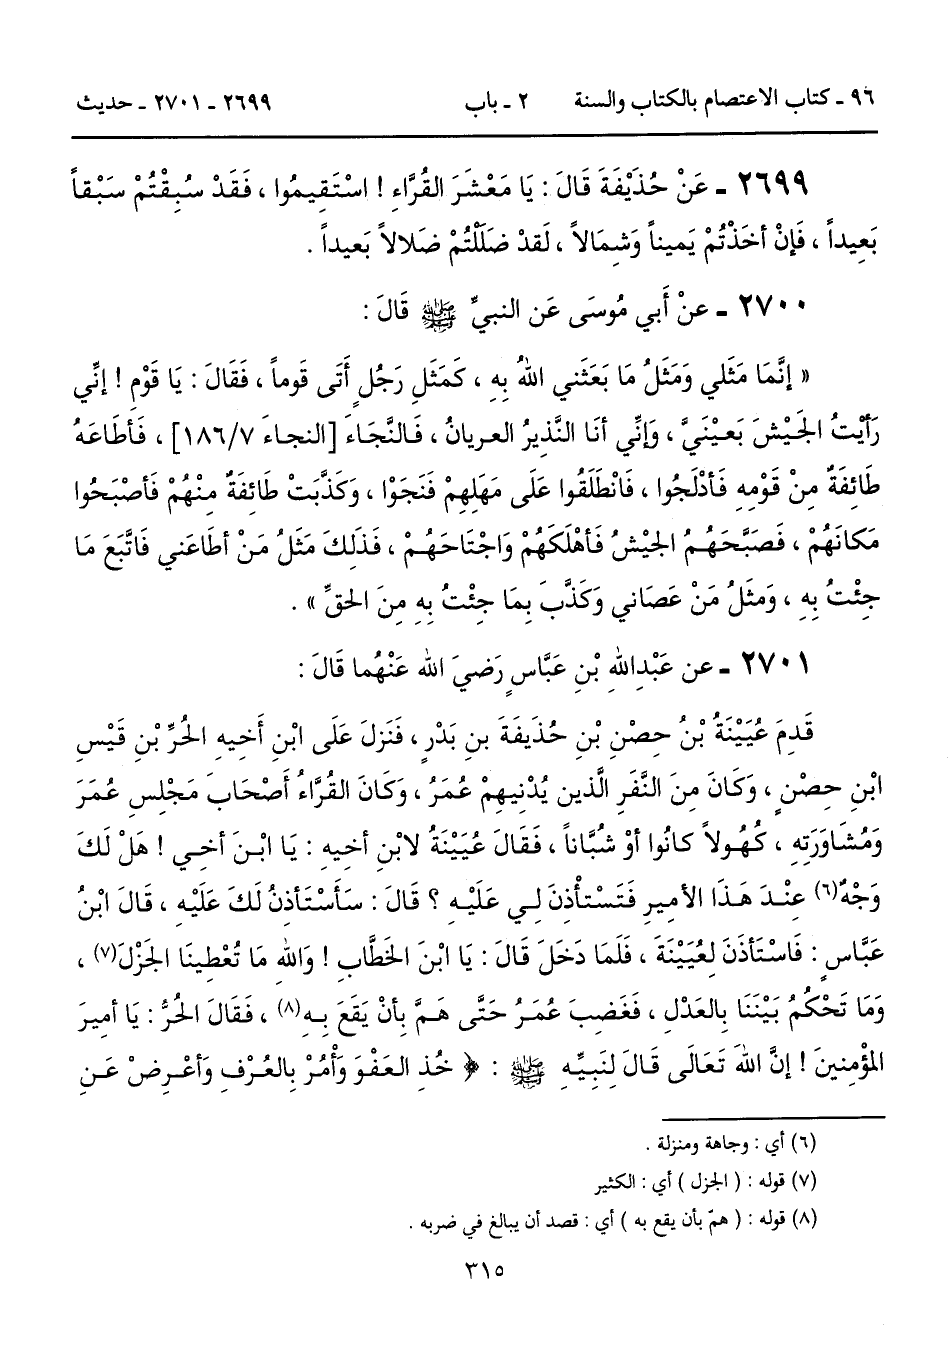 ٩٦ ـ كتاب الاعتصام بالكتاب والسنة ٢ ـ باب ٢٦٩٩ ـ ٢٧٠١ ـ حديث
٢٦٩٩ ـ عَنْ حُذَيْفَةَ قَالَ : يَا مَعْشَرَ القُرَّاءِ ! اسْتَقِيمُوا ، فَقَدْ سُبِقْتُمْ سَبْقاً
بَعِيداً ، فَإنْ أخَذْتُمْ يَميناً وَشِمَالاً ، لَقدْ ضَلَلْتُمْ ضَلالاً بَعيداً .
٢٧٠٠ ـ عنْ أَبي مُوسَى عَن النبيِّ ﷺ قَالَ :
« إنَّمَا مَثَلي وَمَثَلُ مَا بَعَثَني اللهُ بِهِ ، كَمَثَلِ رَجُلٍ أَتَى قَوماً ، فَقَالَ : يَا قَوْمِ ! إنِّي
رَأَيْتُ الجَيْشَ بَعيْنَيَّ ، وَإنِّي أنَا النَّذيرُ العريانُ ، فَالنَّجَاءَ [النجاءَ ١٨٦/٧] ، فَأطَاعَهُ
طَائِفَةٌ مِنْ قَوْمِهِ فَأدْلَجُوا ، فَانْطَلَقُوا عَلَى مَهَلِهِمْ فَنَجَوْا ، وَكَذَّبَتْ طائِفَةٌ مِنْهُمْ فَأصْبَحُوا
مَكَانَهُمْ ، فَصبَّحَهُمُ الجَيْشُ فَأهْلَكَهُمْ وَاجْتَاحَهُمْ ، فَذلِكَ مَثَلُ مَنْ أطَاعَني فَاتَّبَعَ مَا
جِئْتُ بِهِ ، وَمَثَلُ مَنْ عَصَاني وَكَذَّبَ بِمَا جِئْتُ بِهِ مِنَ الحَقِّ » .
٢٧٠١ ـ عن عَبْدِاللهِ بْنِ عَبَّاسٍ رَضيَ الله عَنْهُما قَالَ :
قَدِمَ عُيَيْنَةُ بْنُ حِصْنِ بْنِ حُذَيفَةَ بنِ بَدْرٍ ، فَنَزلَ عَلَى ابْنِ أَخِيهِ الحُرِّ بْنِ قَيْسِ
ابْنِ حِصْنٍ ، وَكَانَ مِنَ النَّفَرِ الَّذين يُدْنِيهِمْ عُمَرُ ، وَكَانَ القُرَّاءُ أَصْحَابَ مَجْلِسِ عُمَرَ
وَمُشَاوَرَتِهِ ، كُهُولاً كانُوا أوْ شُبَّاناً ، فَقَالَ عُيَيْنَةُ لابْنِ أخِيهِ : يَا ابْنَ أخي ! هَلْ لَكَ
وَجْهٌ(٦) عِنْدَ هَذَا الأميرِ فَتَسْتأْذنَ لي عَلَيْهِ ؟ قَالَ : سَأَسْتَأذنُ لَكَ عَلَيْهِ ، قَالَ ابْنُ
عَبَّاسٍ : فَاسْتَأذَنَ لِعُيَيْنَةَ ، فَلَمَا دَخَلَ قَالَ : يَا ابْنَ الخَطَّابِ ! وَالله مَا تُعْطينَا الجَزْلَ(٧) ،
وَمَا تَحْكُمُ بَيْنَنَا بِالعَدْلِ ، فَغَضِبَ عُمَرُ حَتَّى هَمَّ بِأنْ يَقَعَ بِهِ(٨) ، فَقَالَ الحُرُّ : يَا أميرَ
المُؤْمِنينَ ! إنَّ اللهَ تَعَالَى قَالَ لِنَبِيِّهِ ﷺ : ﴿ خُذِ العَفْوَ وَأْمُرْ بِالعُرْفِ وَأعْرِضْ عَنِ
(٦) أي : وجاهة ومنزلة .
(٧) قوله : ( الجزل ) أي : الكثير
(٨) قوله : ( همّ بأن يقع به ) أي : قصد أن يبالغ في ضربه .
٣١٥